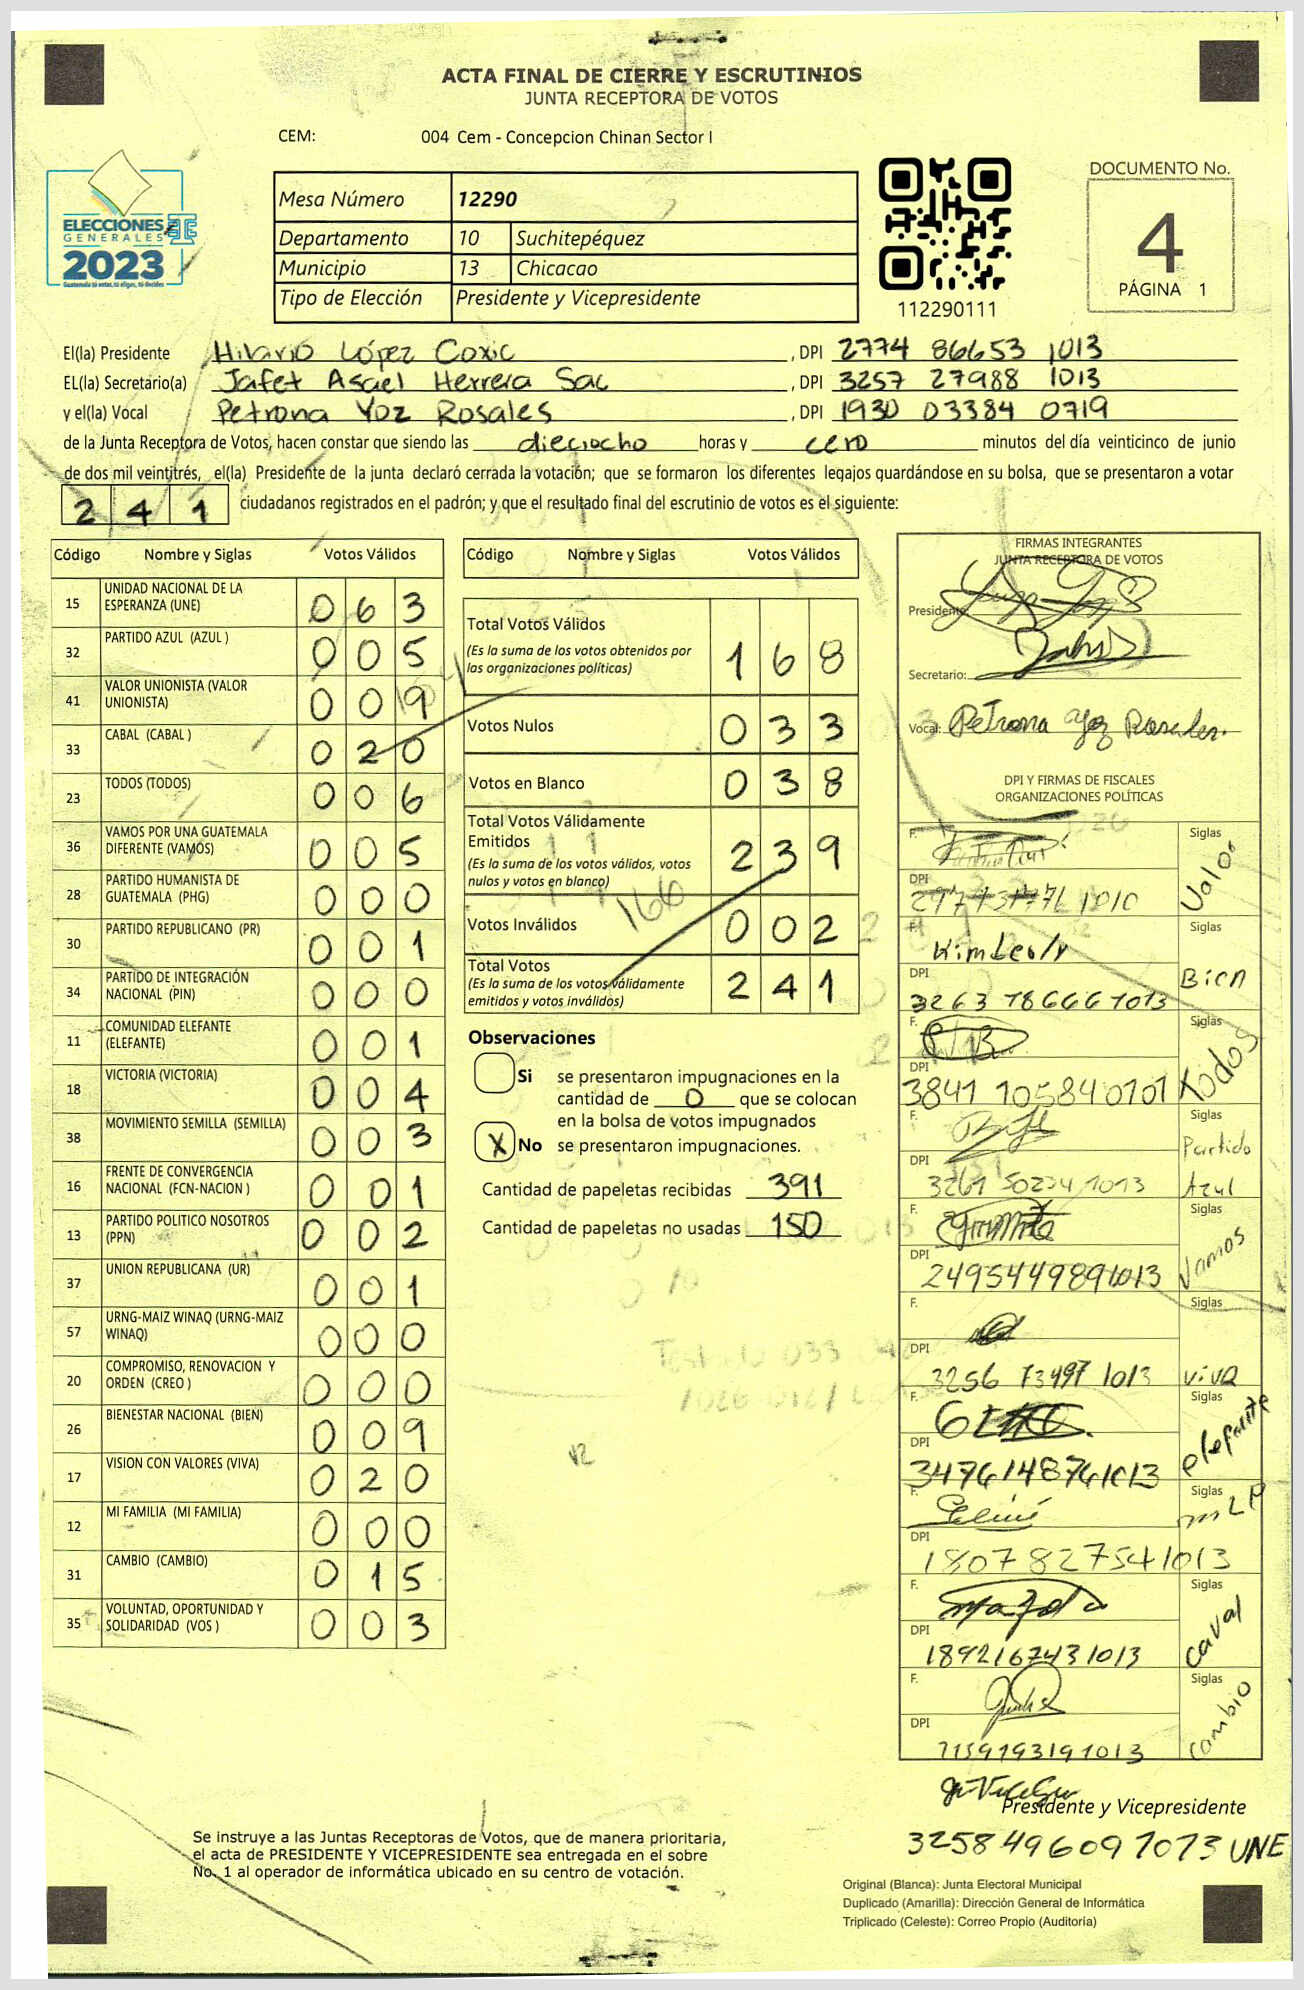 ACTA FINAL DE CIERRE Y ESCRUTINIOS
JUNTA RECEPTORA DE VOTOS
CEM: 004 Cem - Concepcion Chinan Sector I
ELECCIONES
GENERALES
2023
Guatemala tú votas, tú eliges, tú decides
Mesa Número 12290
Departamento 10 Suchitepéquez
Municipio 13 Chicacao
Tipo de Elección Presidente y Vicepresidente
112290111
DOCUMENTO No.
4
PÁGINA 1
El(la) Presidente Hilario López Coxic , DPI 2774 86653 1013
EL(la) Secretario(a) Jafet Asael Herrera Sac , DPI 3257 27988 1013
y el(la) Vocal Petrona Yoz Rosales , DPI 1930 03384 0719
de la Junta Receptora de Votos, hacen constar que siendo las dieciocho horas y cero minutos del día veinticinco de junio
de dos mil veintitrés, el(la) Presidente de la junta declaró cerrada la votación; que se formaron los diferentes legajos guardándose en su bolsa, que se presentaron a votar
241 ciudadanos registrados en el padrón; y que el resultado final del escrutinio de votos es el siguiente:
Código Nombre y Siglas Votos Válidos
15 UNIDAD NACIONAL DE LA ESPERANZA (UNE) 063
32 PARTIDO AZUL (AZUL ) 005
41 VALOR UNIONISTA (VALOR UNIONISTA) 009
33 CABAL (CABAL ) 020
23 TODOS (TODOS) 006
36 VAMOS POR UNA GUATEMALA DIFERENTE (VAMOS) 005
28 PARTIDO HUMANISTA DE GUATEMALA (PHG) 000
30 PARTIDO REPUBLICANO (PR) 001
34 PARTIDO DE INTEGRACIÓN NACIONAL (PIN) 000
11 COMUNIDAD ELEFANTE (ELEFANTE) 001
18 VICTORIA (VICTORIA) 004
38 MOVIMIENTO SEMILLA (SEMILLA) 003
16 FRENTE DE CONVERGENCIA NACIONAL (FCN-NACION ) 001
13 PARTIDO POLITICO NOSOTROS (PPN) 002
37 UNION REPUBLICANA (UR) 001
57 URNG-MAIZ WINAQ (URNG-MAIZ WINAQ) 000
20 COMPROMISO, RENOVACION Y ORDEN (CREO ) 000
26 BIENESTAR NACIONAL (BIEN) 009
17 VISION CON VALORES (VIVA) 020
12 MI FAMILIA (MI FAMILIA) 000
31 CAMBIO (CAMBIO) 015
35 VOLUNTAD, OPORTUNIDAD Y SOLIDARIDAD (VOS ) 003
Código Nombre y Siglas Votos Válidos
Total Votos Válidos 168
(Es la suma de los votos obtenidos por
las organizaciones políticas)
Votos Nulos 033
Votos en Blanco 038
Total Votos Válidamente
Emitidos 239
(Es la suma de los votos válidos, votos
nulos y votos en blanco)
166
Votos Inválidos 002
Total Votos 241
(Es la suma de los votos válidamente
emitidos y votos inválidos)
Observaciones
Si se presentaron impugnaciones en la
cantidad de 0 que se colocan
en la bolsa de votos impugnados
X No se presentaron impugnaciones.
Cantidad de papeletas recibidas 391
Cantidad de papeletas no usadas 150
FIRMAS INTEGRANTES
JUNTA RECEPTORA DE VOTOS
Presidente:
Secretario:
Vocal: Petrona Yoz Rosales
DPI Y FIRMAS DE FISCALES
ORGANIZACIONES POLÍTICAS
F. Siglas Valor
DPI 1010
F. Kimberly Siglas Bien
DPI 3263 78666 1013
F. Siglas Todos
DPI 3841 10584 0101
F. Siglas Partido Azul
DPI 3261 50234 1013
F. Siglas Vamos
DPI 2495449891013
F. Siglas viva
DPI 3256 73497 1013
F. Siglas elefante
DPI 3476148761013
F. Siglas mLP
DPI 1807827541013
F. Siglas caval
DPI 1892167431013
F. Siglas cambio
DPI 7159193191013
Presidente y Vicepresidente
3258496091013 UNE
Se instruye a las Juntas Receptoras de Votos, que de manera prioritaria,
el acta de PRESIDENTE Y VICEPRESIDENTE sea entregada en el sobre
No. 1 al operador de informática ubicado en su centro de votación.
Original (Blanca): Junta Electoral Municipal
Duplicado (Amarilla): Dirección General de Informática
Triplicado (Celeste): Correo Propio (Auditoría)